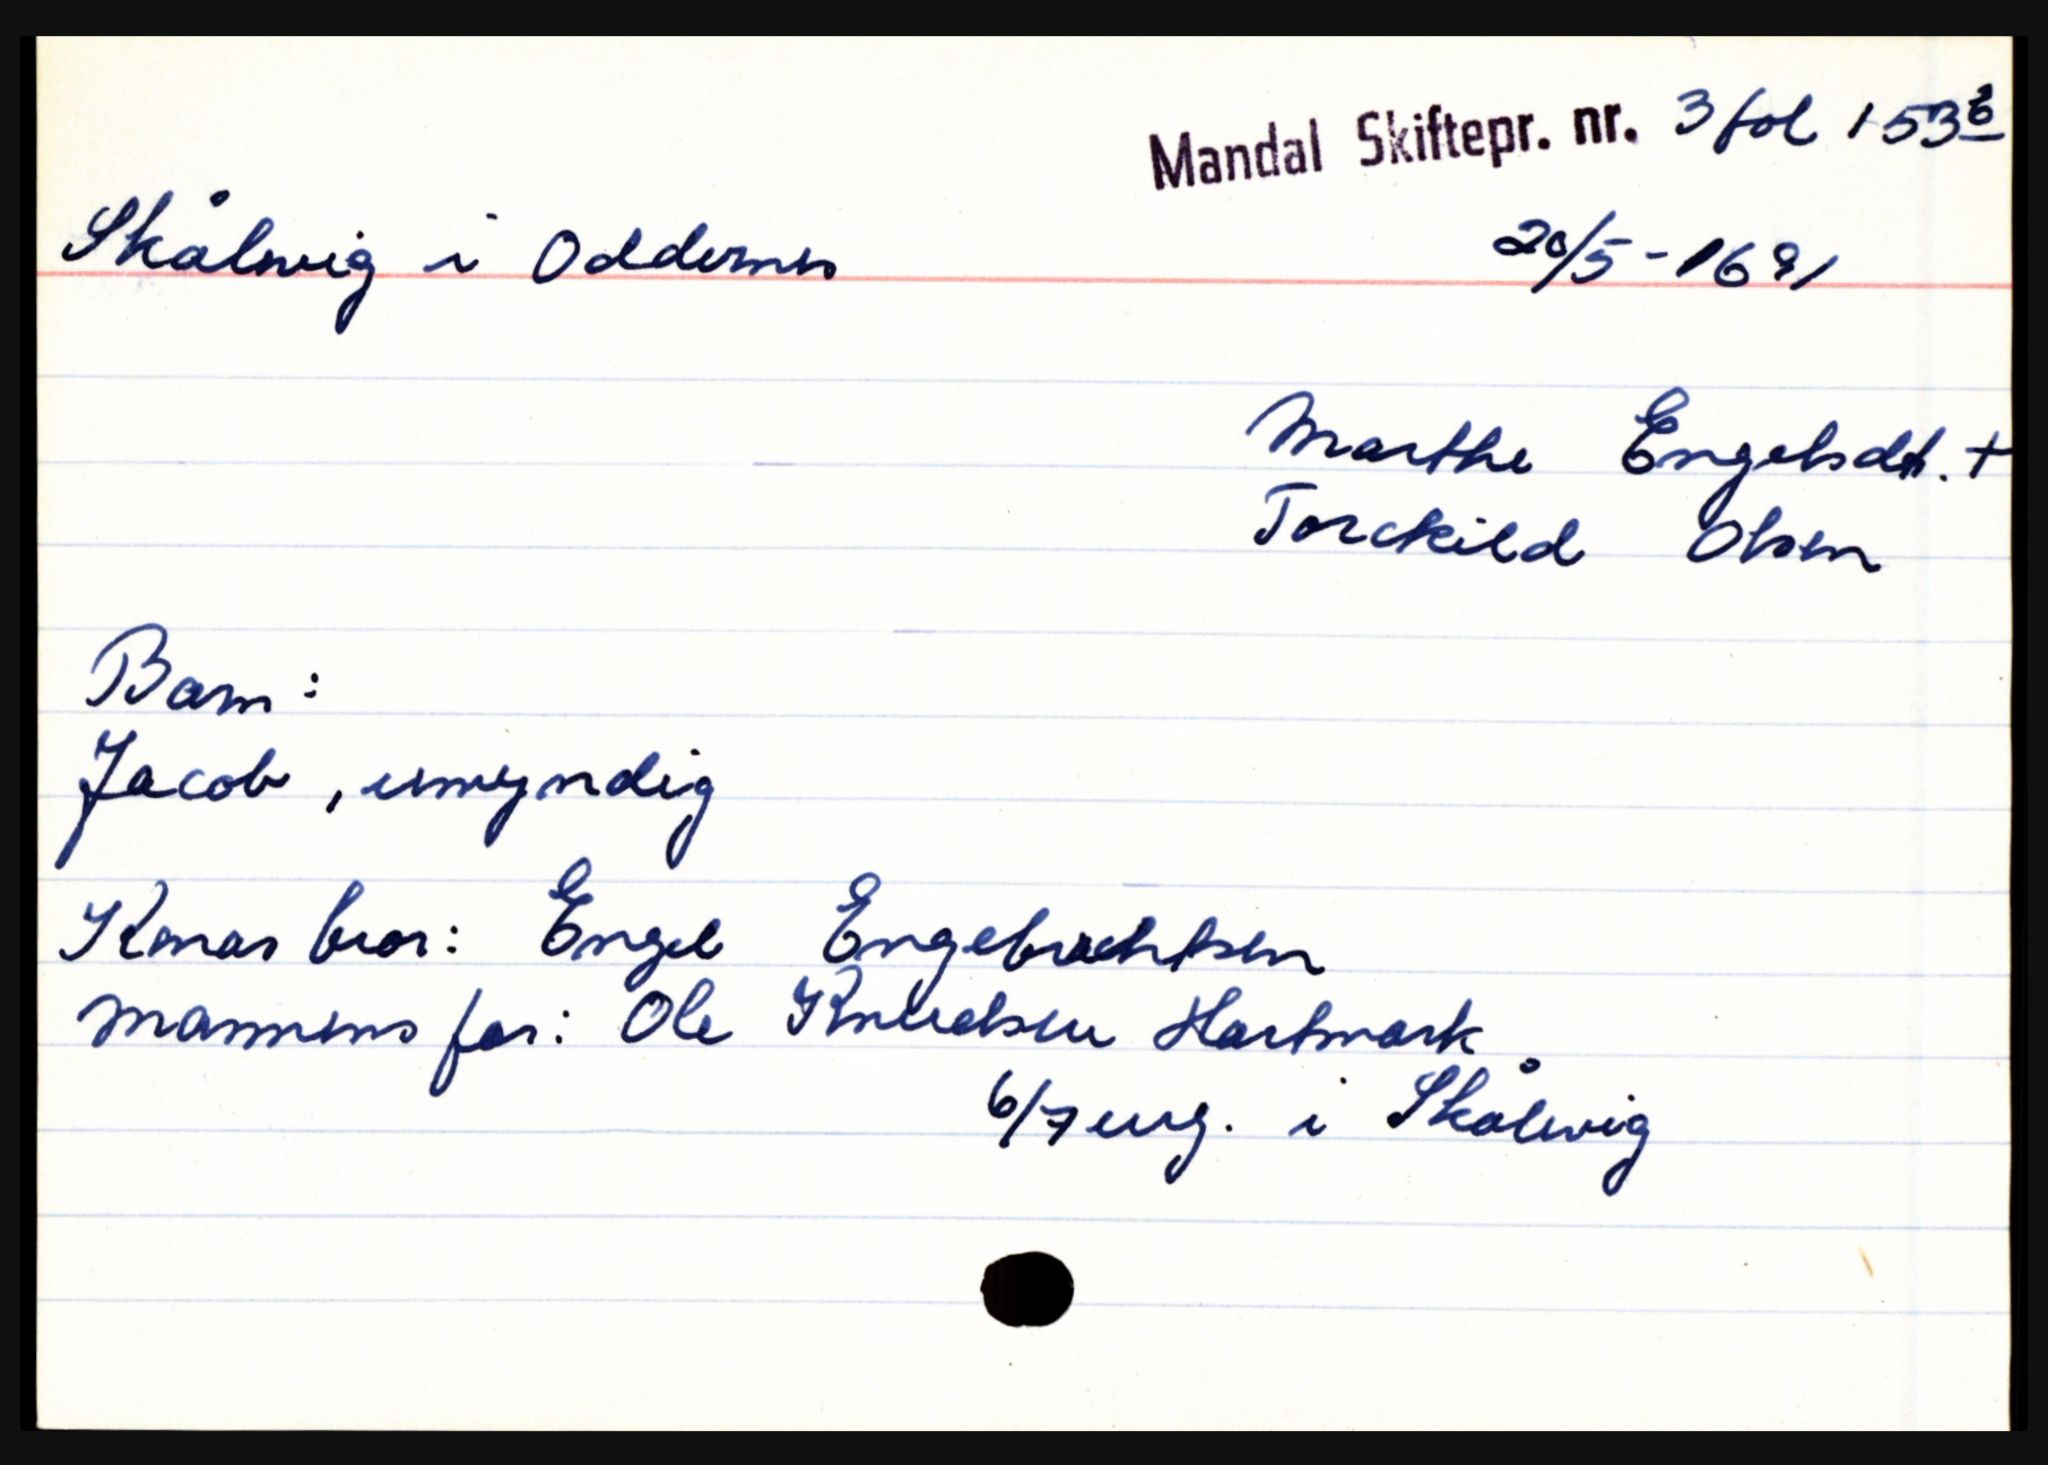 Mandal Skiftepr. nr. 3 fol 153 b
Skålevig i Oddernes 20/5-1691
Marthe Engelsdt. +
Torckild Olsen
Barn:
Jacob, umyndig
Konas bror: Engel Engebrechtsen
mannens far: Ole Knudsen Hartmark
6/7 urg. i Skålevig